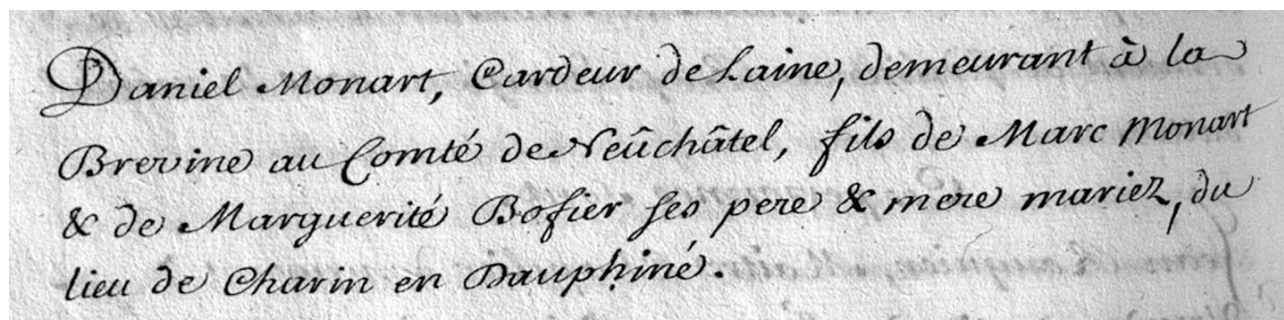 Daniel Monart, Cardeur de Laine, demeurant à la
Brevine au Comté de Neûchâtel, fils de Marc Monart
& de Marguerité Bofier ses pere & mere mariez, du
lieu de Charin en Dauphiné.